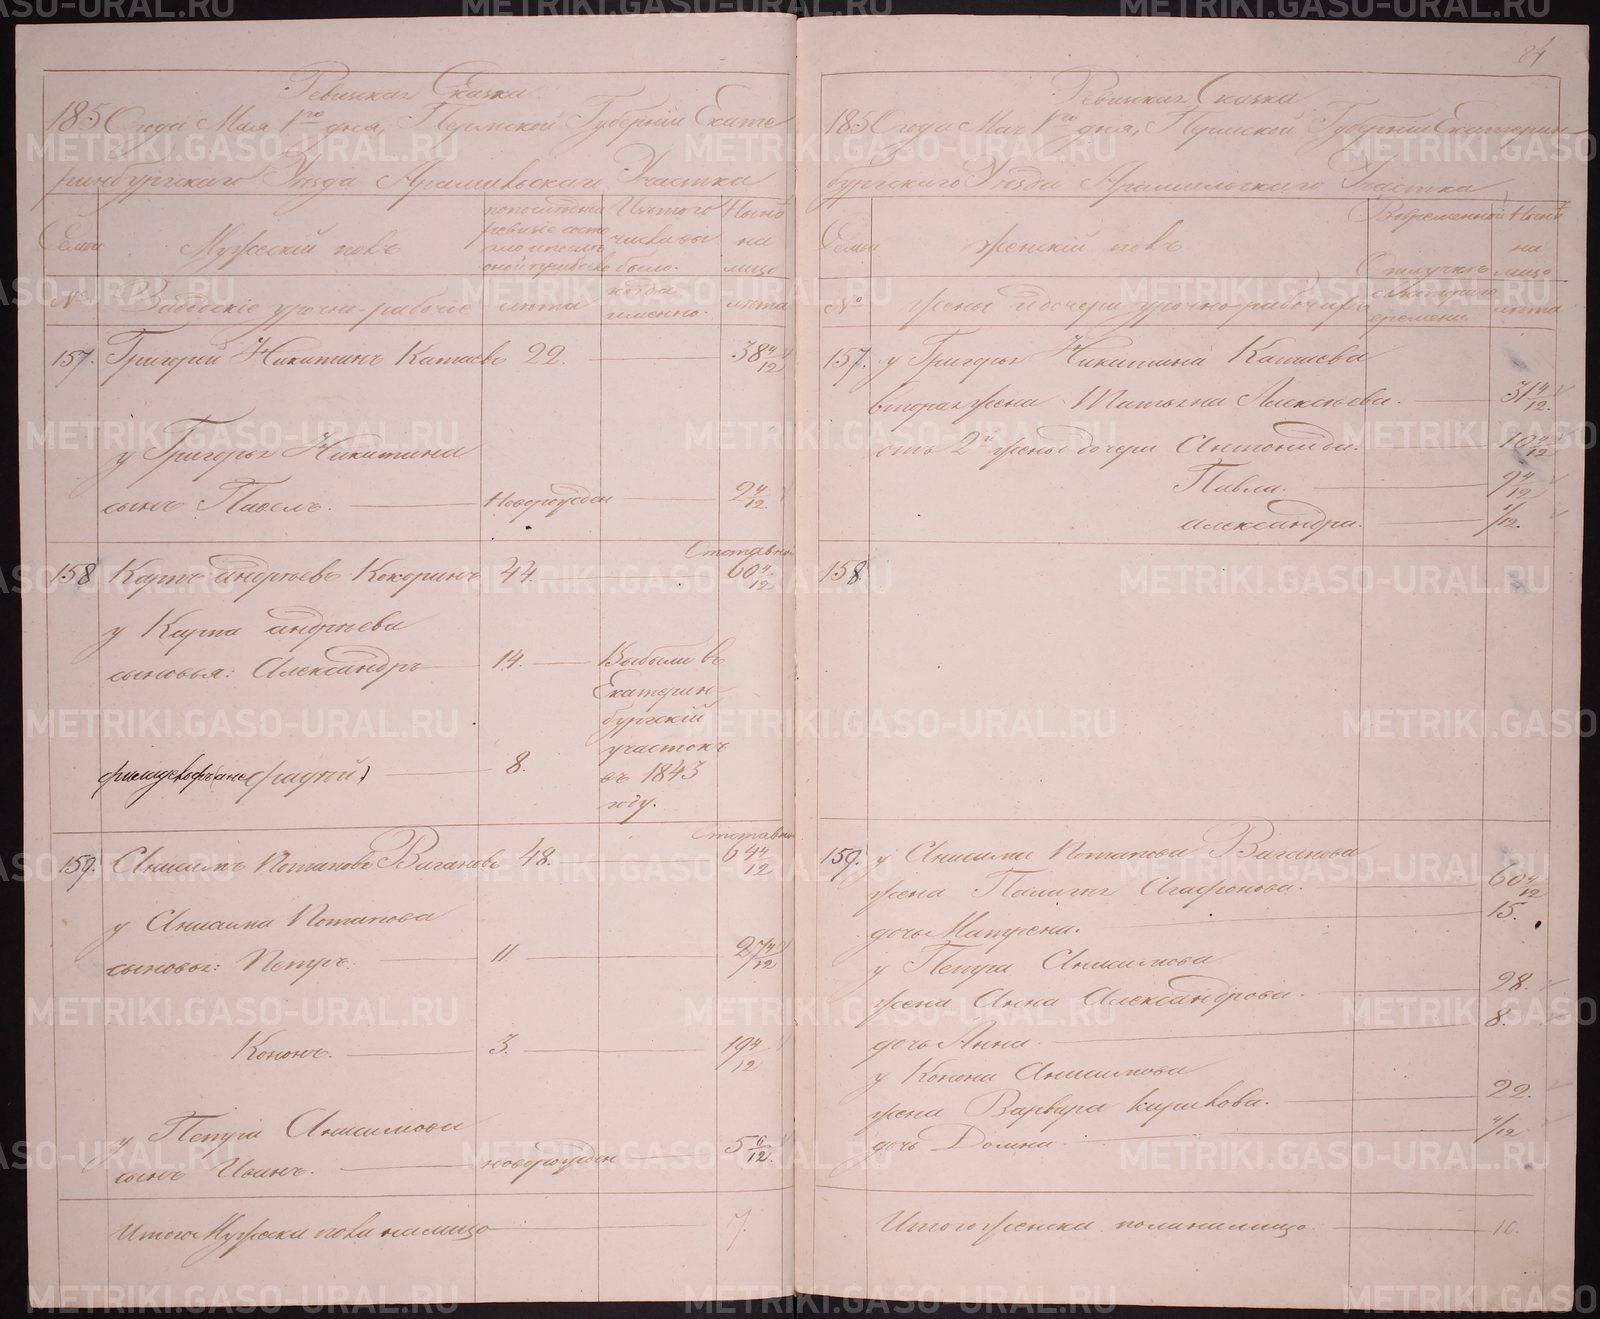 84
Ревизская Сказка
1850 года Мая 1го дня, Пермской Губернии Екате
ринбургскаго Уезда Арамильскаго Участка
Семьи
Мужеский полъ
по последней
ревизии состо
Изъ того
числа вы
было.
Ныне
на
лицо
№
Заводские урочно-рабочие
лета
когда
именно.
лета
157. Григорий Никитинъ Катаевъ 22. 38 4/12
у Григорья Никитина
сынъ Павелъ. Новорожден 2 4/12
158 Карпъ Андреевъ Кокоринъ 44. Отставн 60 4/12
у Карпа Андреева
сыновья: Александръ 14. Выбыли въ
Екатерин
бургский
участокъ
8. въ 1843
году.
159. Анисимъ Потаповъ Вагановъ 48. Отставн 64 4/12
у Анисима Потапова
сыновья: Петръ. 11 27 4/12
Кононъ. 3. 19 4/12
у Петра Анисимова
сынъ Иванъ. новорожден 5 6/12
Итого Мужеска пола налицо 7.
Ревизская Сказка
1850 года Мая 1го дня, Пермской Губернии Екатерин
бургскаго Уезда Арамильскаго Участка
Семьи
Женский полъ
Во временной
отлучке
Ныне
на
лицо
№
жены и дочери урочно-рабочихъ
с котораго
времени
лета
157. у Григорья Никитина Катаева
вторая жена Татьяна Алексеева. 31 4/12.
отъ 2й жены дочери Антонида. 10 4/12
Павла. 9 4/12
Александра. 4/12.
158.
159. у Анисима Потапова Ваганова
жена Палагея Агафонова. 60 4/12
дочь Матрена. 15.
у Петра Анисимова
жена Анна Александрова. 28.
дочь Анна 8.
у Конона Анисимова
жена Варвара Киршова. 22.
дочь Домна 4/12
Итого женска пола налицо 10.
METRIKI.GASO-URAL.RU